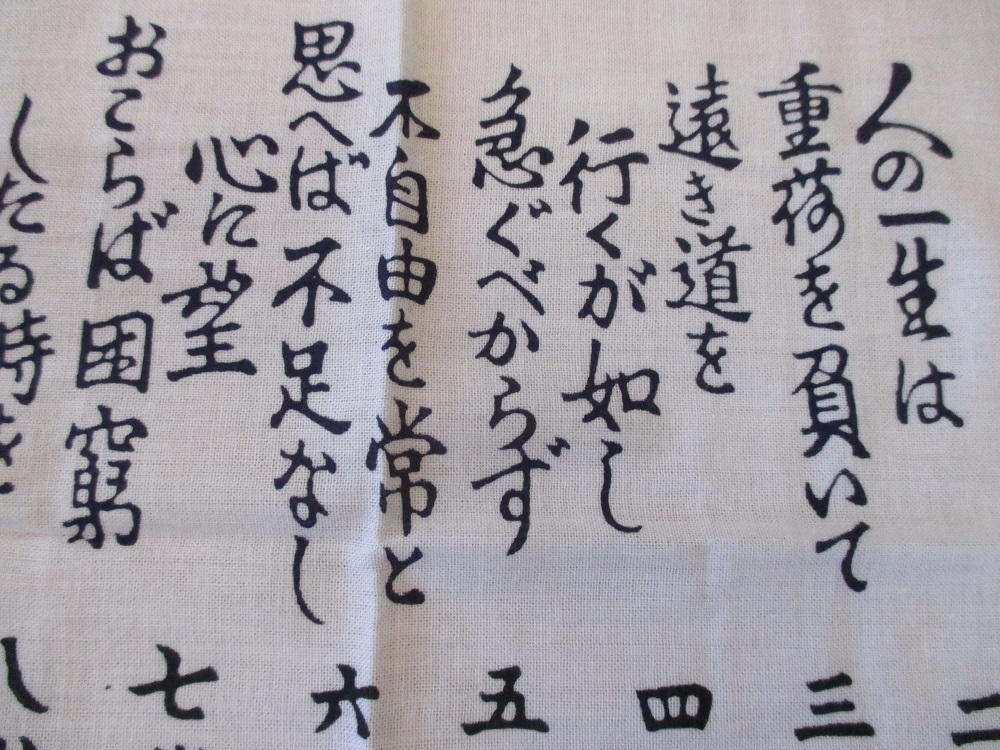 人の一生は
重荷を負いて
遠き道を
行くが如し
急ぐべからず
不自由を常と
思へば不足なし
心に望
おこらば困窮
したる時を
二
三
四
五
六
七